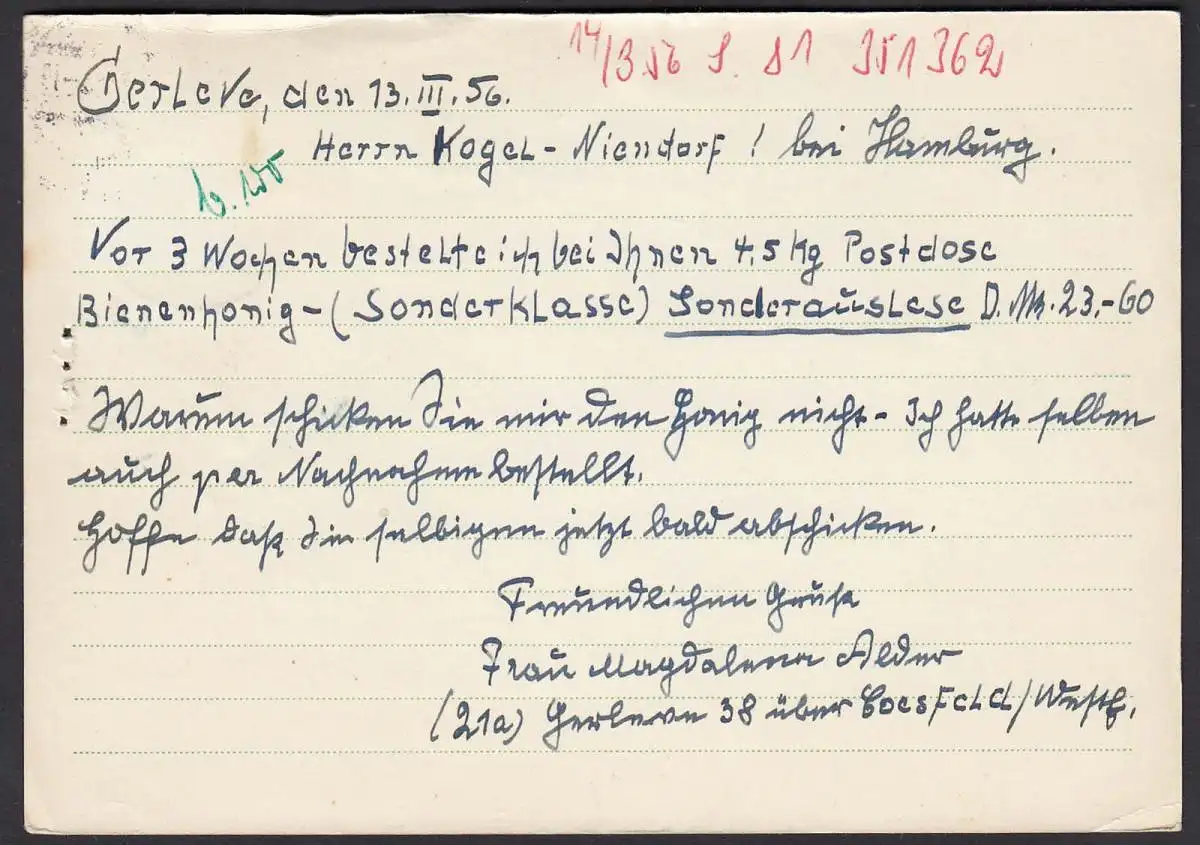 14/3 56 S. 81 351 362
Gerleve, den 13. III. 56.
Herrn Kogel - Niendorf! bei Hamburg.
Vor 3 Wochen bestelte ich bei Ihnen 4,5 kg Postdose
Bienenhonig - (Sonderklasse) Sonderauslese D. Mk. 23,-60
Warum schicken Sie mir den Honig nicht - Ich hatte selben
auch per Nachnahem bestellt.
Hoffe daß Sie selbigen jetzt bald abschicken.
Freundlichen Gruß
Frau Magdalena Alder
(21a) Gerleve 38 über Coesfeld/Westf.